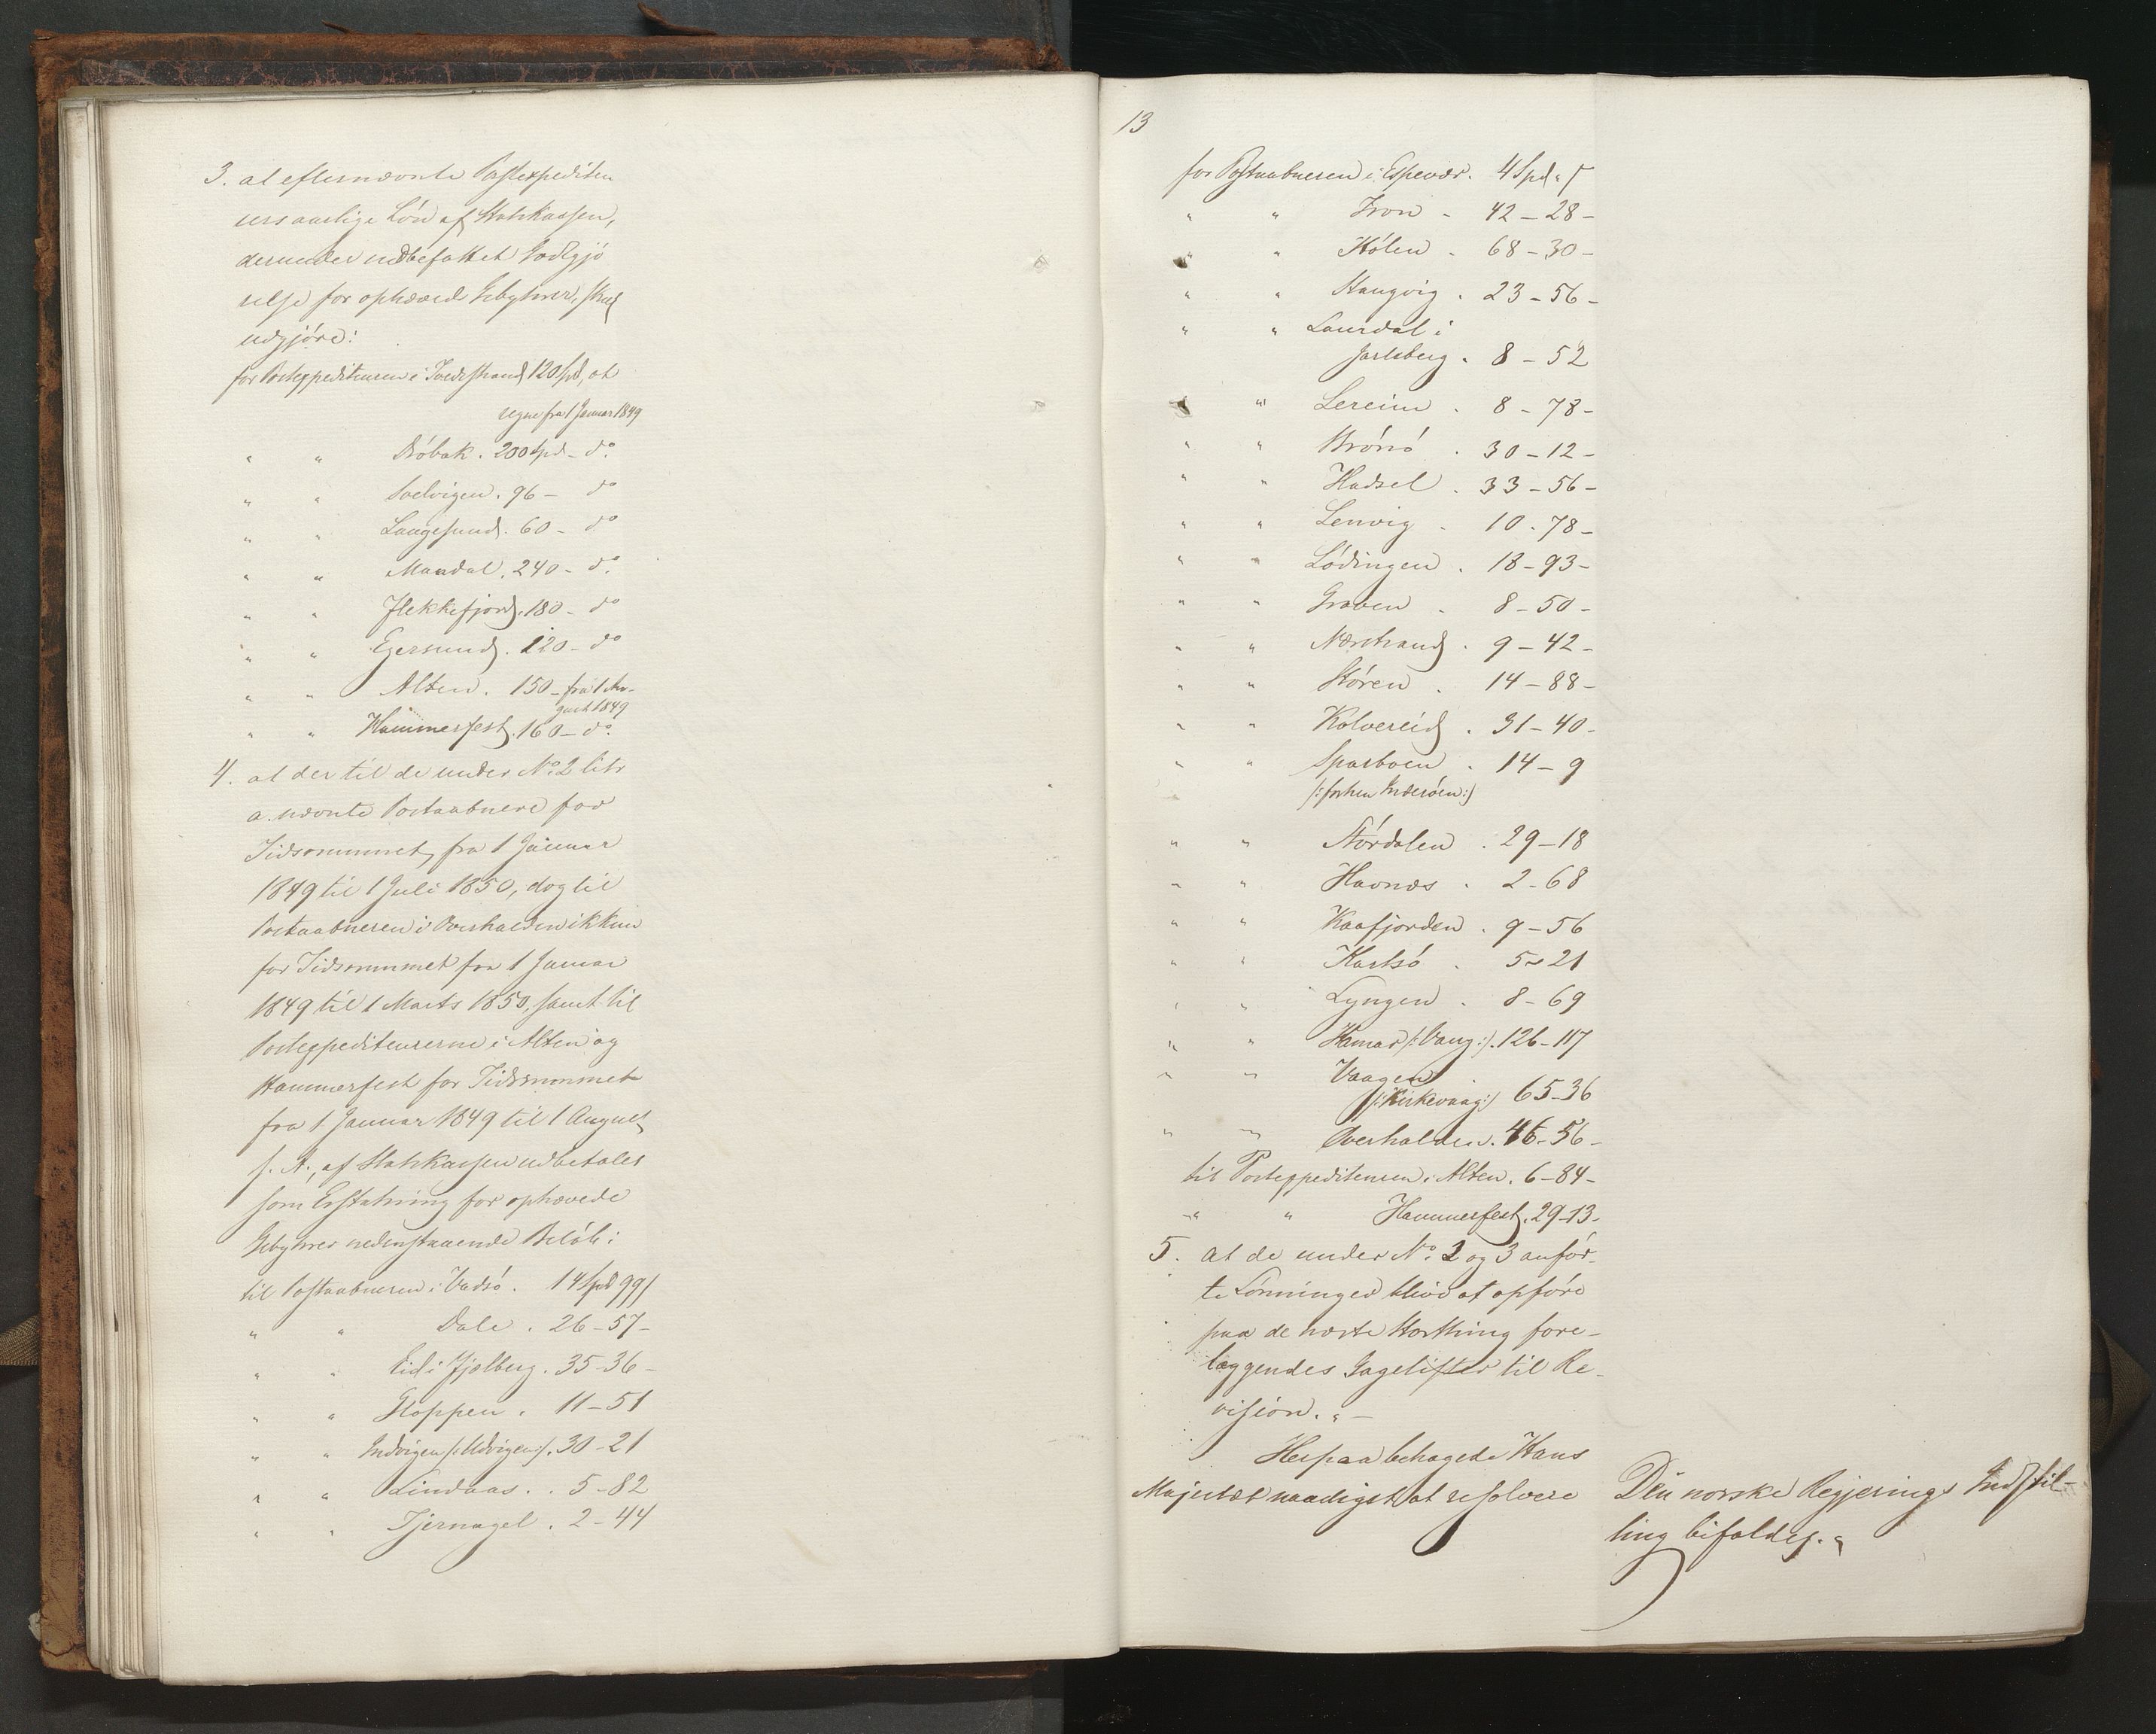 3. at efternævnte Postexpediteu
rers aarlige Løn af Statskassen,
derunder indbefattet Godtgjø
relse for ophævede Gebyhrer, skal
udgjøre:
for Postexpediteuren i Tvedestrand 120 Spd, at
regne fra 1 Januar 1849
" " Drøbak. 200 Spd - do.
" " Soelvigen. 96 - do
" " Langesund. 60 - do
" " Mandal. 240 - do.
" " Flekkefjord. 180 - do
" " Egersund. 120 - do
" " Alten. 150 - fra 1 Au-
gust 1849
" " Hammerfest. 160 - do.
4. at der til de under No. 2 litr
a. nævnte Postaabnere for
Tidsrummet fra 1 Januar
1849 til 1 Juli 1850, dog til
Postaabneren i Overhalden ikkun
for Tidsrummet fra 1 Januar
1849 til 1 Marts 1850, samt til
Postexpediteurerne i Alten og
Hammerfest for Tidsrummet
fra 1 Januar 1849 til 1 August
s. A., af Statskassen udbetales
som Erstatning for ophævede
Gebyhrer nedenstaaende Beløb:
til Postaabneren i Vadsø. 14 Spd 99 s
" " Dale. 26 - 57 -
" " Eid i Fjelberg. 35 - 36 -
" " Gloppen. 11 - 51
" " Indvigen /: Udvigen :/. 30 - 21
" " Lindaas. . 5 - 82
" " Tjernagel. 2 - 44
13
for Postaabneren i Espevær. 4 Spd " s
" " Fron - 42 - 28 -
" " Hølen - 68 - 30 -
" " Stangvig. 23 - 56 -
" " Laurdal i
Jarlsberg. 8 - 52
" " Lereim. 8 - 78 -
" " Brønø. 30 - 12 -
" " Hadsel. 33 - 56 -
" " Lenvig - 10 - 78 -
" " Lødingen. 18 - 93 -
" " Graven - 8 - 50 -
" " Nærstrand. 9 - 42 -
" " Støren. 14 - 88 -
" " Kolvereid. 31 - 40 -
" " Sparboen. 14 - 9
/: forhen Inderøen :/
" " Størdalen. 29 - 18
" " Havnæs. 2 - 68
" " Kaafjorden. 9 - 56
" " Karlsø. 5 - 21
" " Lyngen. 8 - 69
" " Hamar /: Vang :/. 126 - 117
" " Vaagen
/: Kirkevaag :/ 65 - 36
" " Overhalden. 46 - 56 -
til Postexpediteuren i Alten. 6 - 84 -
" " Hammerfest. 29 - 13 -
5. at de under No. 2 og 3 anfør-
te Lønninger blive at opføre
paa de næste Storthing fore-
læggendes Gagelister til Re-
vision. " -
Herpaa behagede Hans
Majestæt naadigst at resolvere
Den norske Regjerings Indstil-
ling bifaldes. "